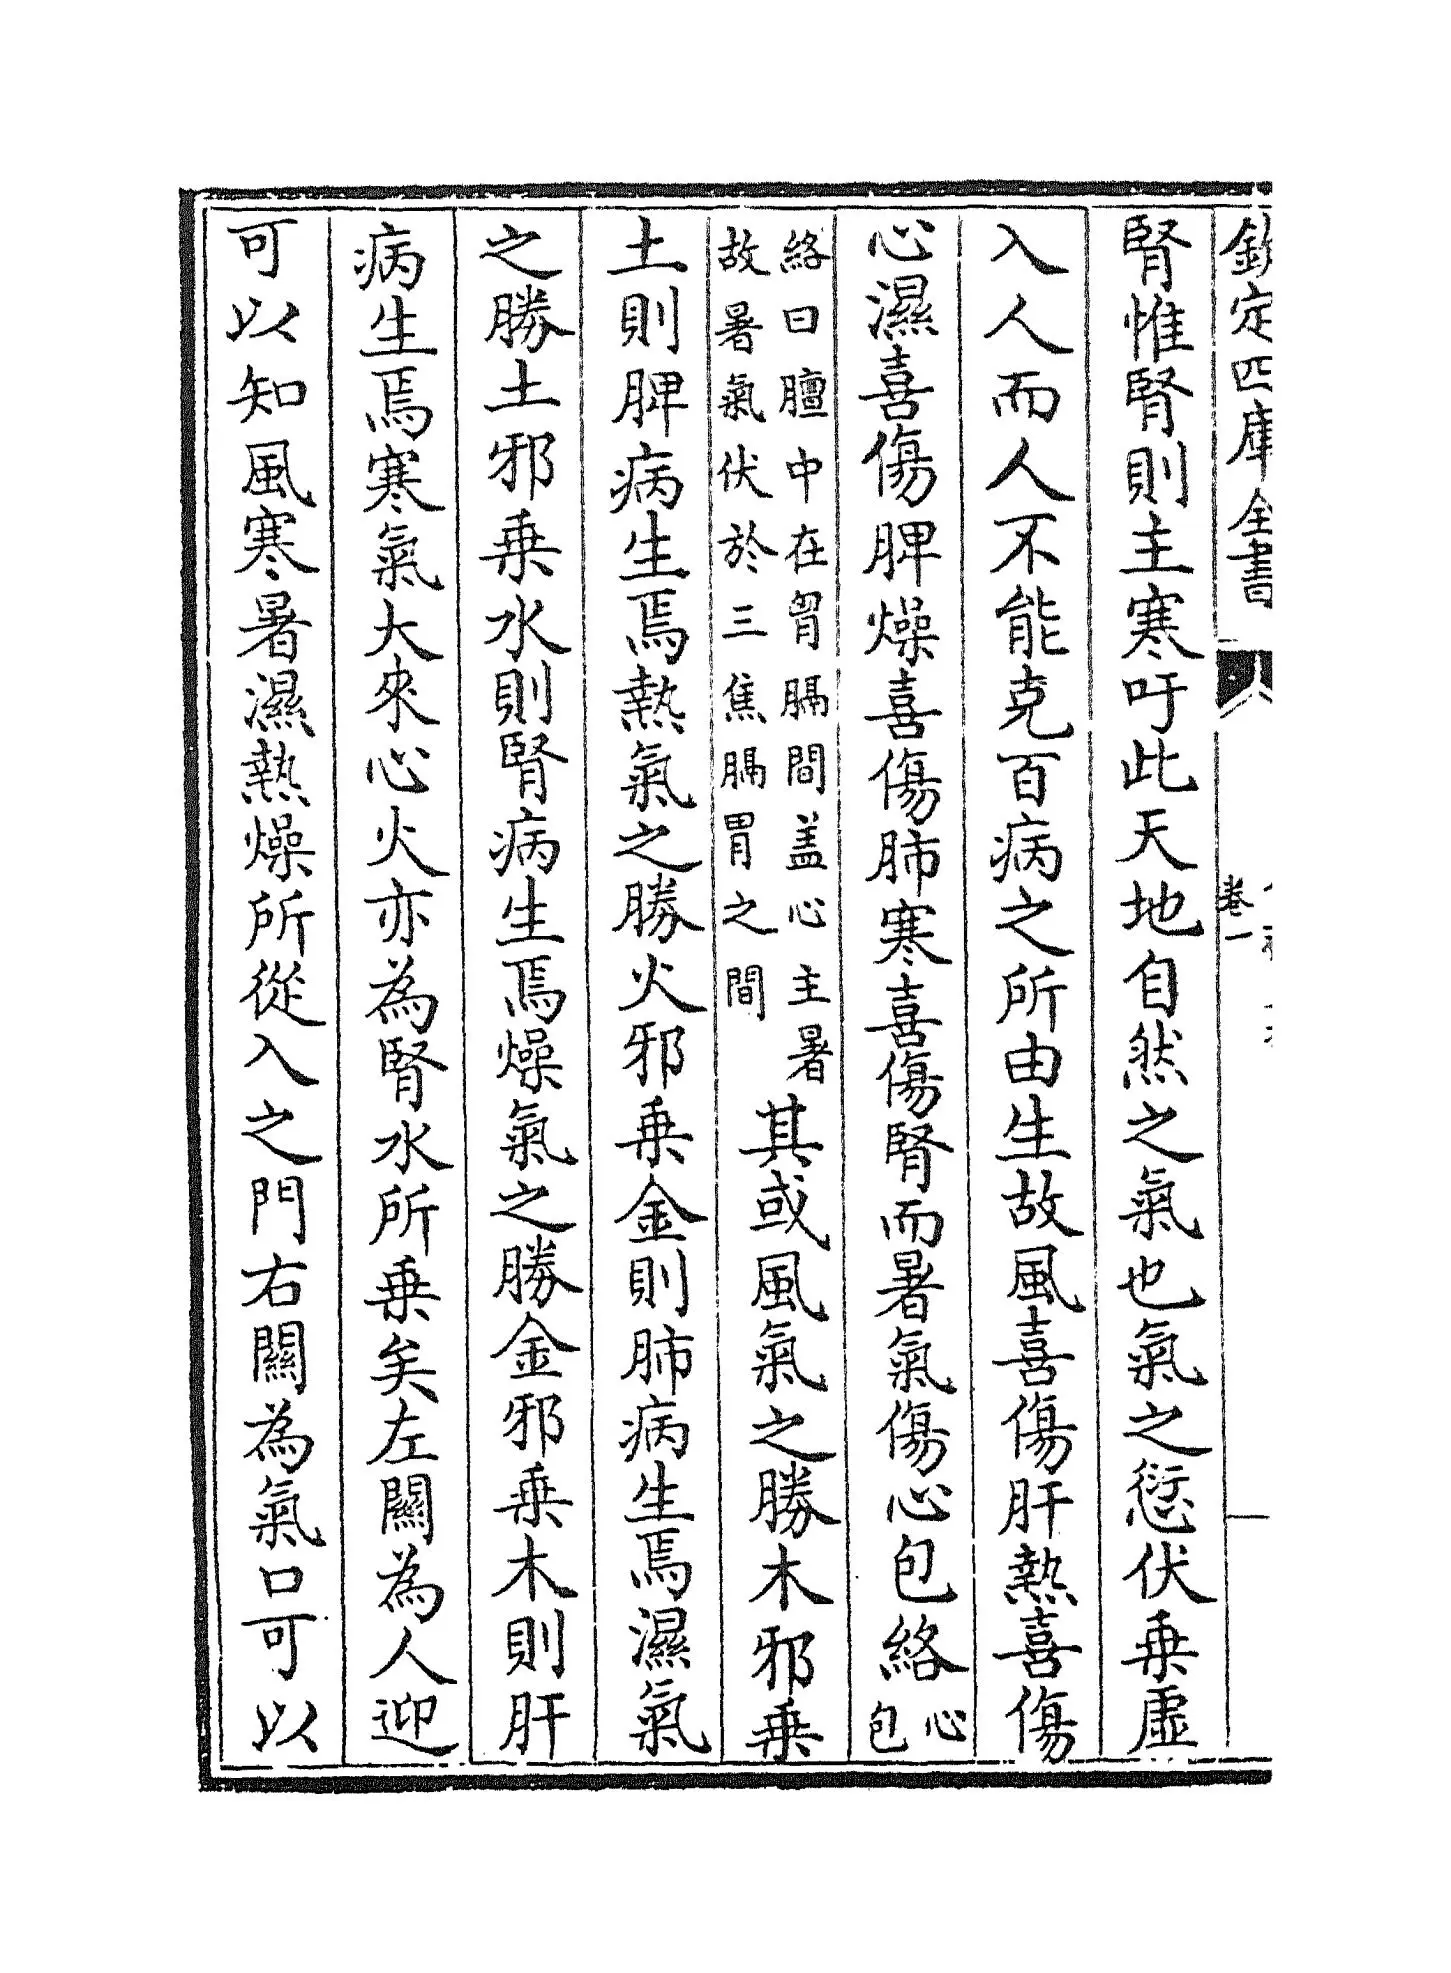 欽定四庫全書
卷一
腎惟腎則主寒吁此天地自然之氣也氣之愆伏乗虛
入人而人不能克百病之所由生故風喜傷肝熱喜傷
心濕喜傷脾燥喜傷肺寒喜傷腎而暑氣傷心包絡心包
絡曰膻中在胷膈間盖心主暑
故暑氣伏於三焦膈胃之間
其或風氣之勝木邪乗
土則脾病生焉熱氣之勝火邪乗金則肺病生焉濕氣
之勝土邪乗水則腎病生焉燥氣之勝金邪乗木則肝
病生焉寒氣大來心火亦為腎水所乗矣左關為人迎
可以知風寒暑濕熱燥所從入之門右關為氣口可以